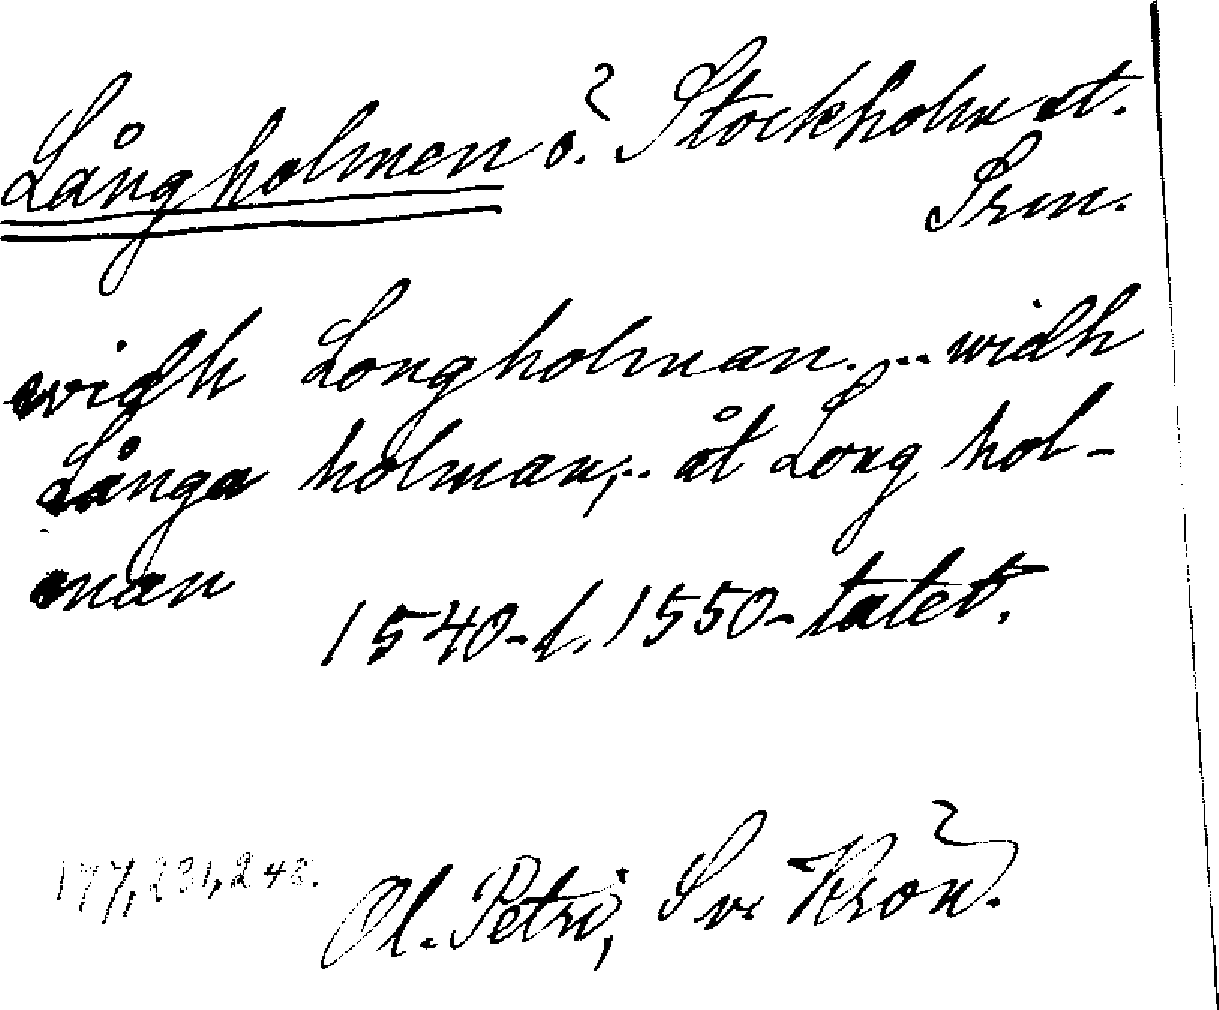 Långholmen ö. Stockholm st.
Srm.
widh Longholman... widh
Långa holman,.. åt Long hol-
man
1540-t. 1550-talet.
177, 231, 248. Ol. Petri, Sv. Krön.